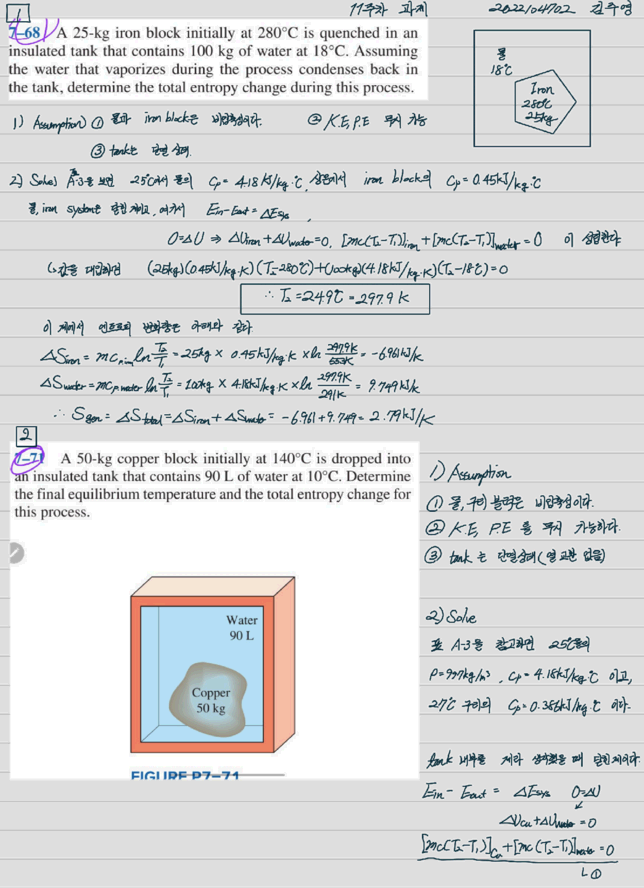 11주차 과제 2022104702 김주영
1
7-68 A 25-kg iron block initially at 280°C is quenched in an
insulated tank that contains 100 kg of water at 18°C. Assuming
the water that vaporizes during the process condenses back in
the tank, determine the total entropy change during this process.
물
18℃
Iron
280℃
25kg
1) Assumption) ① 물과 iron block은 비압축성이다. ② K.E, P.E 무시 가능
③ tank는 단열 상태.
2) Solve) A-3을 보면 25℃에서 물의 Cp = 4.18 kJ/kg·℃, 상온에서 iron block의 Cp = 0.45 kJ/kg·℃
물, iron system은 닫힌계이고, 여기서 Ein-Eout = ΔEsys,
0=ΔU ⇒ ΔUiron+ΔUwater=0, [mc(T₂-T₁)]iron+[mc(T₂-T₁)]water=0 이 성립한다
값을 대입하면 (25kg)(0.45kJ/kg·K)(T₂-280℃)+(100kg)(4.18kJ/kg·K)(T₂-18℃)=0
∴ T₂ = 24.9℃ = 297.9 K
이 계에서 엔트로피 변화량은 아래와 같다
ΔSiron = mC ln T₂/T₁ = 25kg × 0.45kJ/kg·K × ln 297.9K/553K = -6.961kJ/K
ΔSwater = mCp,water ln T₂/T₁ = 100kg × 4.18kJ/kg·K × ln 297.9K/291K = 9.749kJ/K
∴ Sgen = ΔStotal = ΔSiron + ΔSwater = -6.961+9.749 = 2.79kJ/K
2
7-71 A 50-kg copper block initially at 140°C is dropped into
an insulated tank that contains 90 L of water at 10°C. Determine
the final equilibrium temperature and the total entropy change for
this process.
Water
90 L
Copper
50 kg
FIGURE P7-71
1) Assumption
① 물, 구리 블럭은 비압축성이다.
② K.E, P.E 를 무시 가능하다.
③ tank 는 단열상태(열 교환 없음)
2) Solve
표 A-3을 참고하면 25℃물의
ρ=997kg/m³, Cp = 4.18kJ/kg·℃ 이고,
27℃ 구리의 Cp=0.386kJ/kg·℃ 이다.
tank 내부를 계라 생각했을 때 닫힌계이다.
Ein - Eout = ΔEsys 0=ΔU
ΔUcu+ΔUwater=0
[mc(T₂-T₁)]Cu+[mc(T₂-T₁)]water=0
①